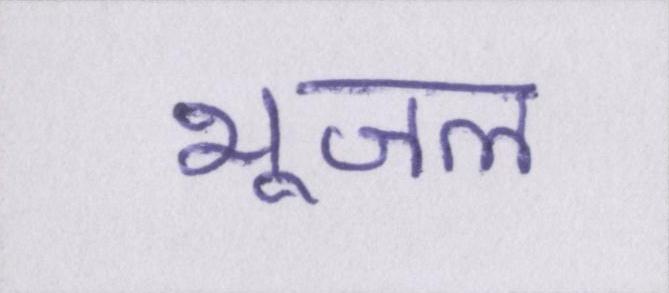 भूजल